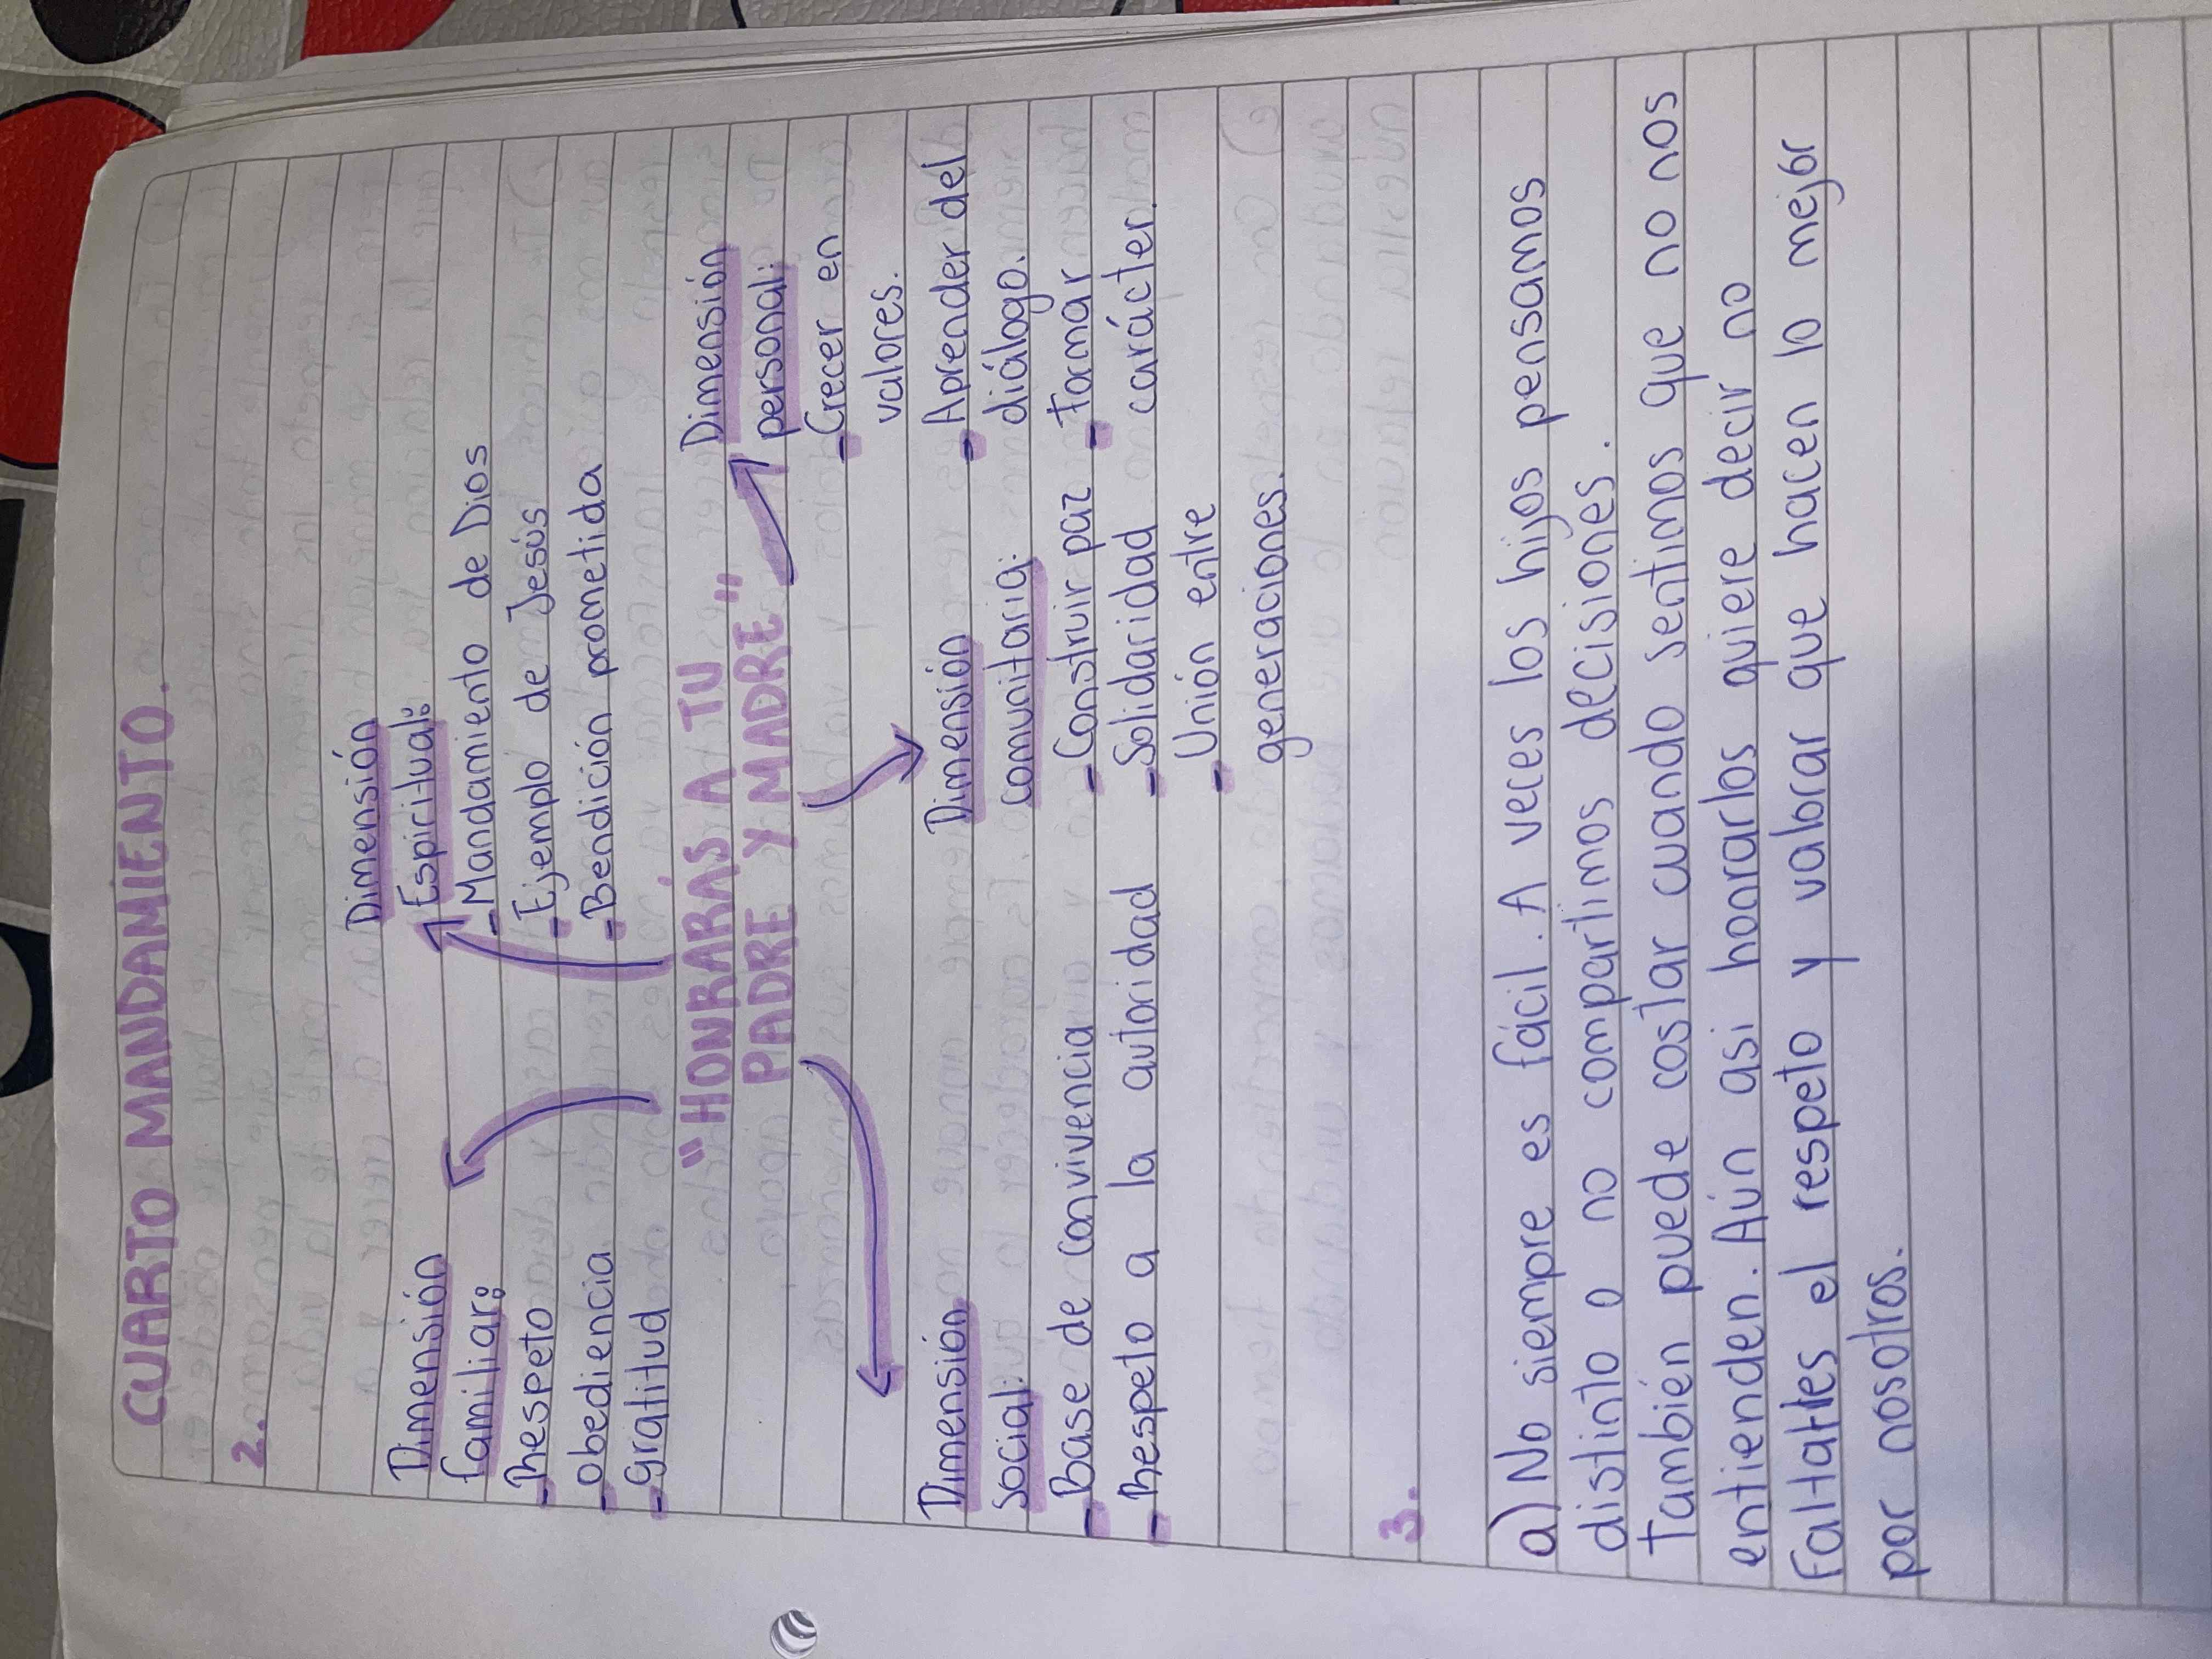 CUARTO MANDAMIENTO.
2.
Dimensión
familiar:
-Respeto
-Obediencia
-Gratitud
Dimensión
Espiritual:
-Mandamiento de Dios
-Ejemplo de Jesús
-Bendición prometida
"HONRARÁS A TU
PADRE Y MADRE"
Dimensión
personal:
-Crecer en
valores.
-Aprender del
diálogo.
-Formar
carácter.
Dimensión
social:
-Base de convivencia
-Respeto a la autoridad
Dimensión
comunitaria:
-Construir paz
-Solidaridad
-Unión entre
generaciones.
3.
a) No siempre es fácil. A veces los hijos pensamos
distinto o no compartimos decisiones.
También puede costar cuando sentimos que no nos
entienden. Aún asi honrarlos quiere decir no
Faltarles el respeto y valorar que hacen lo mejor
por nosotros.